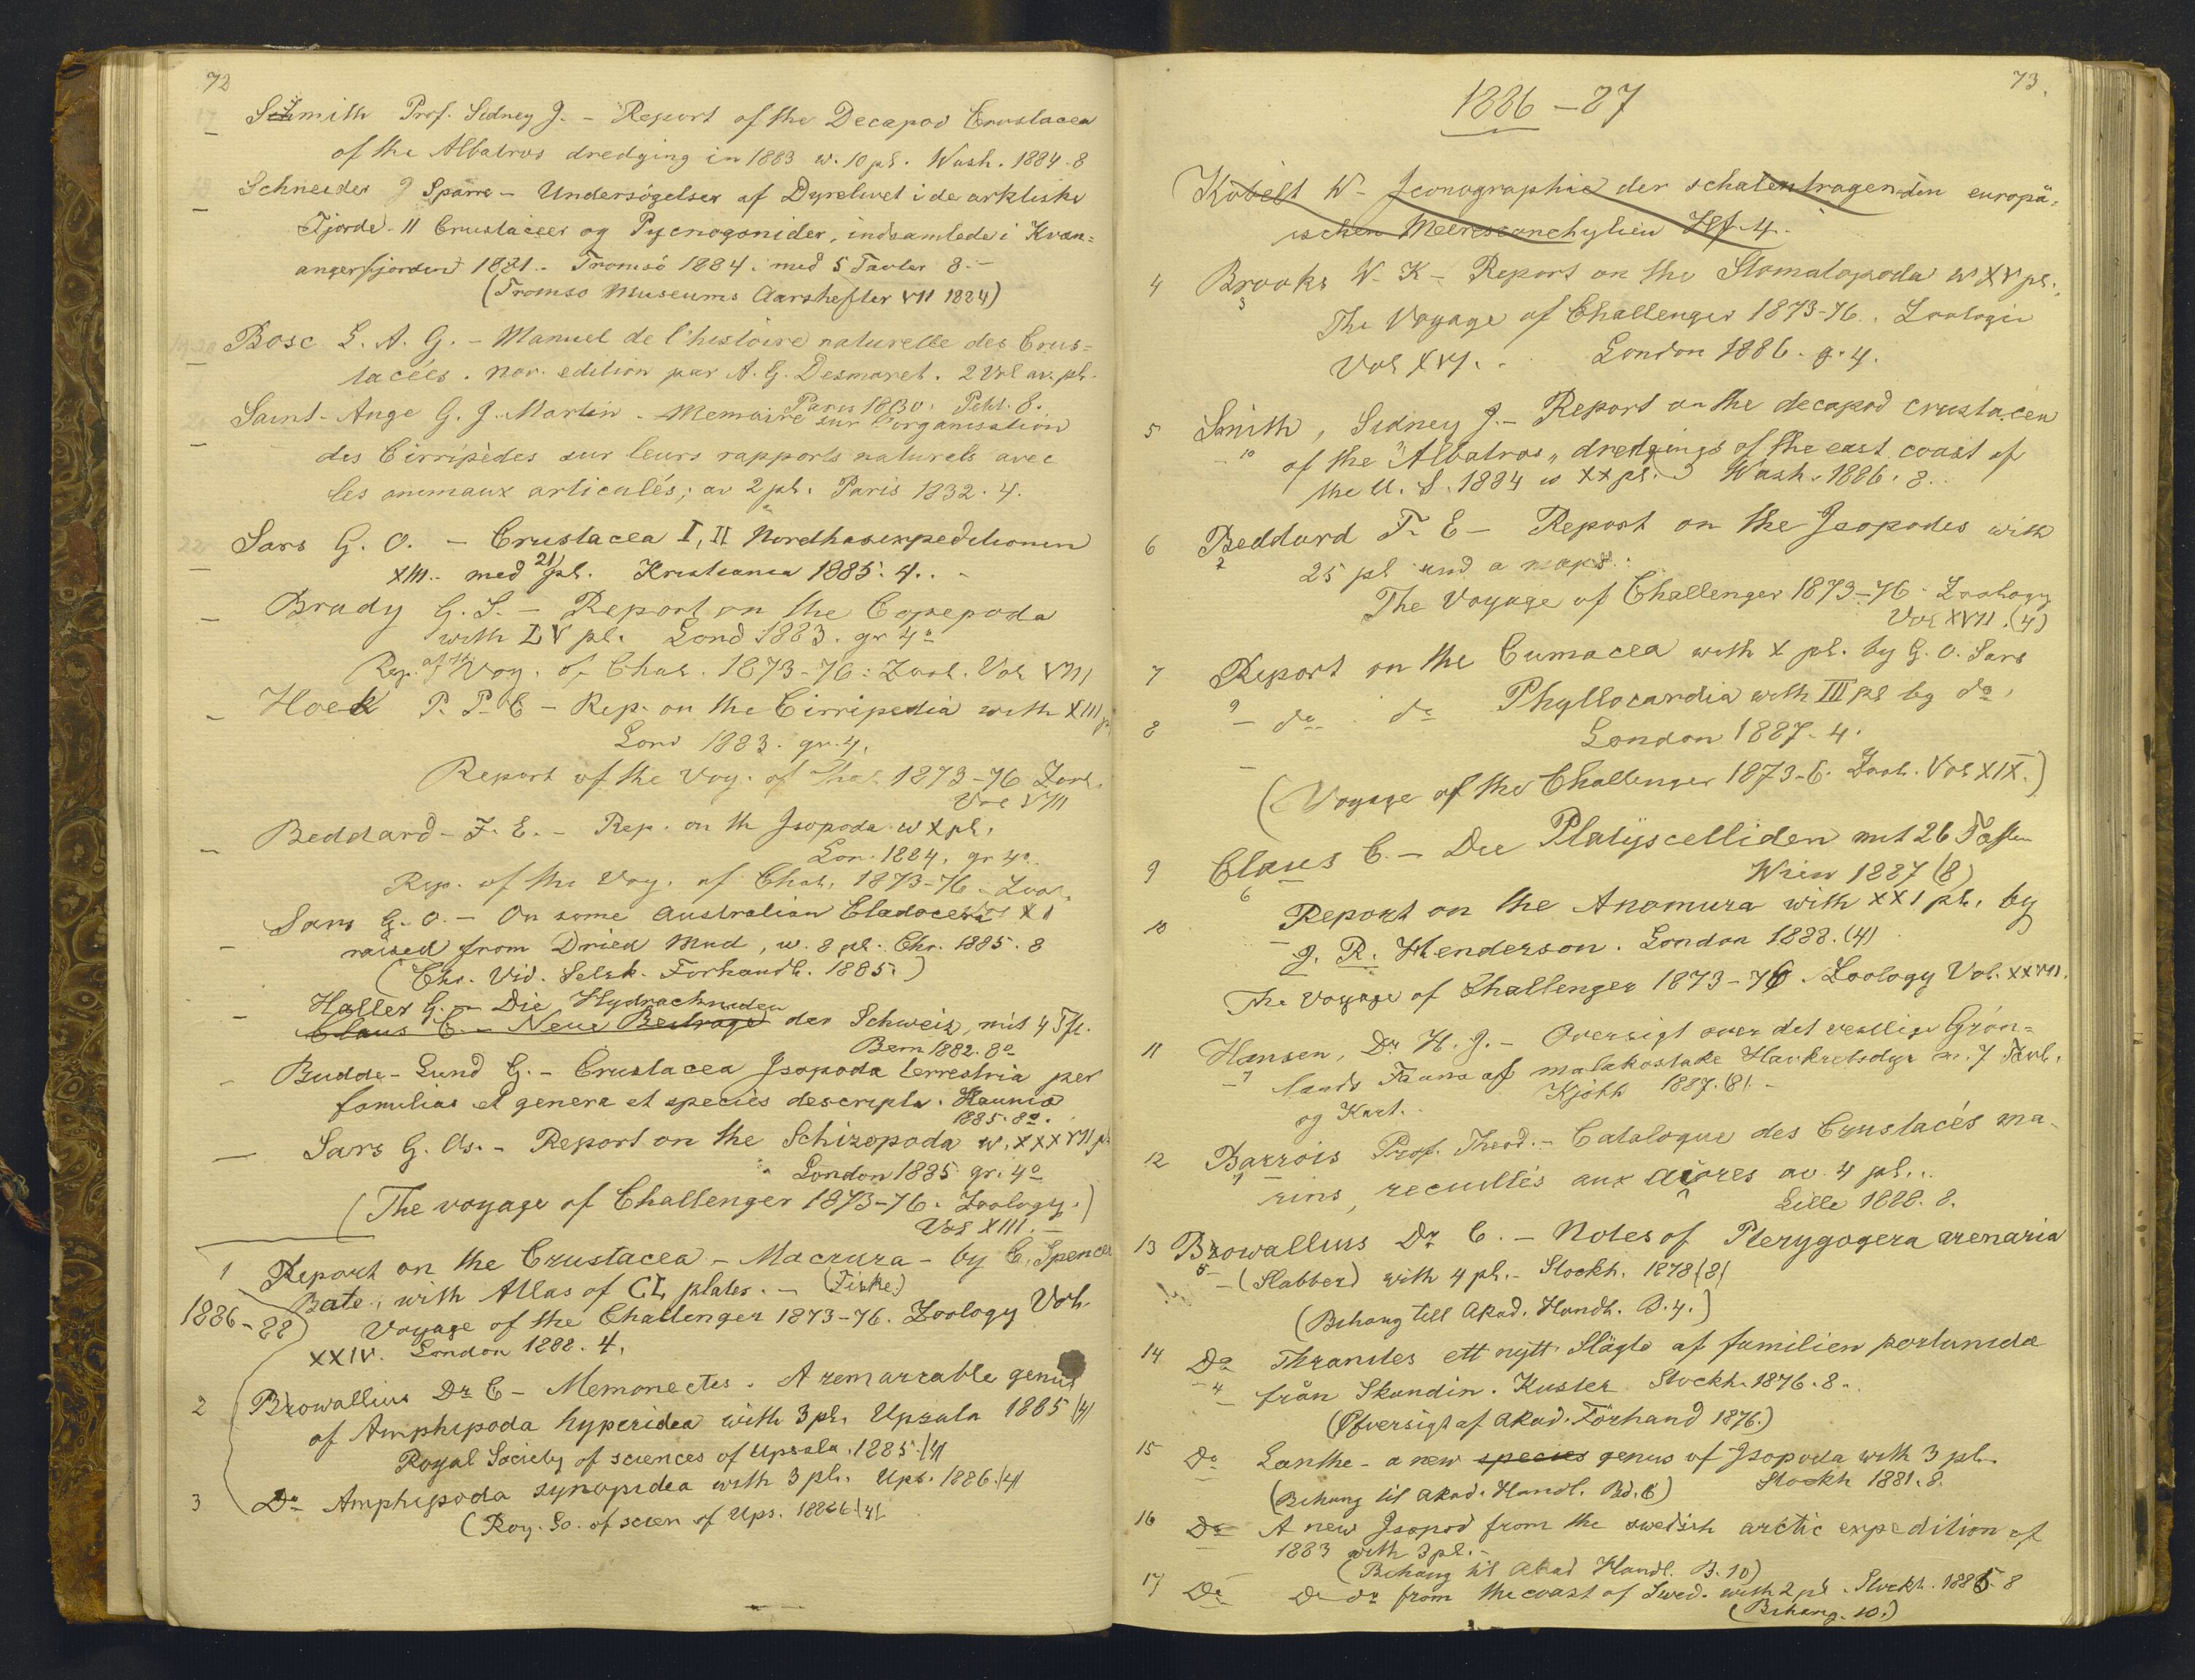 72
Smith Prof. Sidney J. - Report of the Decapod Crustacea
of the Albatros dredging in 1883 w. 10 pl. Wash. 1884. 8
Schneider J Sparre - Undersögelser af Dyrelivet i de arktiske
Fjorde. II Crustaceer og Pycnogonider, indsamlede i Kvæn=
angerfjorden 1881. - Tromsö 1884. med 5 Tavler 8. -
(Tromsö Museums Aarshefter VII 1884)
19-20 Bosc L. A. G. - Manuel de l'histoire naturelle des Crus=
tacées. nov. edition par A. G. Desmaret. 2 Vol av. pl.
Paris 1830. Petit. 8.
Saint-Ange G. J. Martin - Memoire sur l'organisation
des Cirripèdes sur leurs rapports naturels avec
les animaux articulés; av 2 pl. Paris 1832. 4.
22 Sars G. O. - Crustacea I, II Nordhavsexpeditionen
XIII. - med 21 pl. Kristiania 1885. 4. . -
Brady G. S. - Report on the Copepoda
with LV pl. Lond 1883. gr 4º
Rep. of th Voy. of Chal. 1873-76: Zool. Vol VIII
Hoek P. P. C - Rep. on the Cirripedia with XIII p
Lond 1883. gr. 4.
Report of the Voy. of Chal. 1873-76 Zool.
Vol VIII
Beddard - F. E. - Rep. on th Isopoda w X pl.
Lon. 1884. gr 4º.
Rep. of the Voy. of Chal. 1873-76 - Zool.
Vol XI
Sars G. O. - On some Australian Cladocera
raised from Dried Mud, w. 8 pl. Chr. 1885. 8
(Chr. Vid. Selsk. Forhandl. 1885.)
Haller G. - Die Hydrachniden
Claus C. - Neue Beitrage der Schweiz, mit 4 Tfl.
Bern 1882. 8º
Budde-Lund G. - Crustacea Isopoda terrestria per
familias et genera et species descripta. Hauniæ
1885. 8º.
Sars G. Os. - Report on the Schizopoda w. XXXVII pl
London 1885 gr. 4º
(The voyage of Challenger 1873-76. Zoology.)
Vol XIII. -
1 Report on the Crustacea - Macrura - by C. Spence
Bate, with Atlas of CL plates. - (Fiske)
1886-88 Voyage of the Challenger 1873-76. Zoology Vol.
XXIV. London 1888. 4.
2 Browallius Dr C - Memonectes. A remarcable genus
of Amphipoda hyperidea with 3 pl. Upsala 1885 (4)
Royal Society of sciences of Upsala. 1885. (4)
3 Do Amphipoda synopidea with 3 pl. Ups. 1886. (4)
(Roy. So. of scien of Ups. 1886 (4)
73.
1886-87
Kobelt W - Iconographie der schalentragenden europä=
ischen Meeresconchylien Hf. 4.
4 Brooks W. K - Report on the Stomatopoda w XV pl.
3
The Voyage of Challenger 1873-76. Zoologie
Vol XVI. . London 1886. g. 4.
5 Smith, Sidney J. - Report on the decapod crustacea
10 of the "Albatros" dredgings of the east coast of
the U. S. 1884 w XX pl. Wash. 1886. 8.
6 Beddard F. E - Report on the Isopodes with
2 25 pl and a maps.
The Voyage of Challenger 1873-76. Zoology
Vol XVII. (4)
7 Report on the Cumacea with X pl. by G. O. Sars
9
8 - do do Phyllocardia with III pl by do.
London 1887. 4.
(Voyage of the Challenger 1873-6. Zool. Vol XIX.)
9 Claus C. - Die Platyscelliden mit 26 Tafln
6 Wien 1887 (8)
10 Report on the Anomura with XXI pl. by
J. R. Henderson. London 1888. (4)
The Voyage of Challenger 1873-76. Zoology Vol. XXVII.
11 Hansen, Dr H. J. - Oversigt over det vestlige Grön=
7 lands Fauna af malakostake Havkrebsdyr m. 7 Tavl.
og Kart. . Kjöbh 1887. (8). -
12 Barrois Prof. Theod. - Catalogue des Crustacés ma-
1 rins, recuillés aux Açores av. 4 pl. .
Lille 1888. 8.
13 Browallius Dr C. - Notes of Pterygogera arenaria
5 - (Slabber) with 4 pl. - Stockh. 1878 (8)
(Bihang till Akad. Handl. B. 4.)
14 Do Thranites ett nytt Slägte af familien portunidæ
4 från Skandin. Kuster Stockh. 1876. 8 -.
(Öfversigt af Akad. Förhand 1876.)
15 Do Ianthe - a new species genus of Isopoda with 3 pl.
(Bihang til Akad. Handl. Bd. 6) Stockh 1881. 8.
16 Do A new Isopod from the swedish arctic expedition of
1883 with 3 pl. -
(Bihang til Akad Handl. B. 10)
17 Do Do do from the coast of Swed. with 2 pl. Stockh. 1885. 8
(Bihang. 10.)